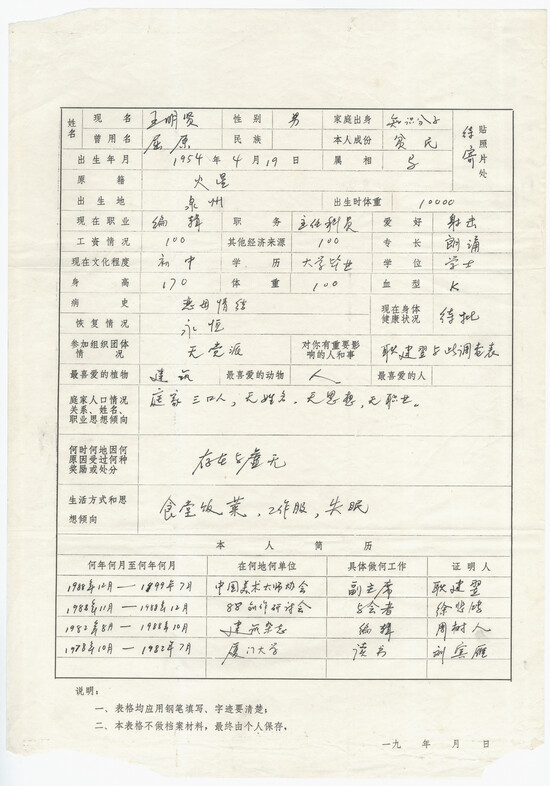 姓名 现名 王明贤 性别 男 家庭出身 知识分子 贴照片处 待寄
曾用名 屈原 民族 本人成份 贫民
出生年月 1954年4月19日 属相
原籍 火星
出生地 泉州 出生时体重 10000
现在职业 编辑 职务 主任科员 爱好 射击
工资情况 100 其他经济来源 100 专长 朗诵
现在文化程度 初中 学历 大学毕业 学位 学士
身高 170 体重 100 血型 K
病史 恋母情结 现在身体健康状况 待批
恢复情况 永恒
参加组织团体情况 无党派 对你有重要影响的人和事 耿建翌与此调查表
最喜爱的植物 建筑 最喜爱的动物 人 最喜爱的人
庭家人口情况 庭家三口人，无姓名，无思想，无职业。
关系、姓名、
职业思想倾向
何时何地因何
原因受过何种 存在与虚无
奖励或处分
生活方式和思 食堂饭菜，工作服，失眠
想倾向
本人简历
何年何月至何年何月 在何地何单位 具体做何工作 证明人
1988年12月—1899年7月 中国美术大师协会 副主席 耿建翌
1988年11月—1988年12月 88创作研讨会 与会者
1982年8月—1988年10月 建筑杂志 编辑 周树人
1978年10月—1982年7月 厦门大学 读书 刘宾雁
说明：
一、表格均应用钢笔填写、字迹要清楚；
二、本表格不做档案材料，最终由个人保存，
一九 年 月 日